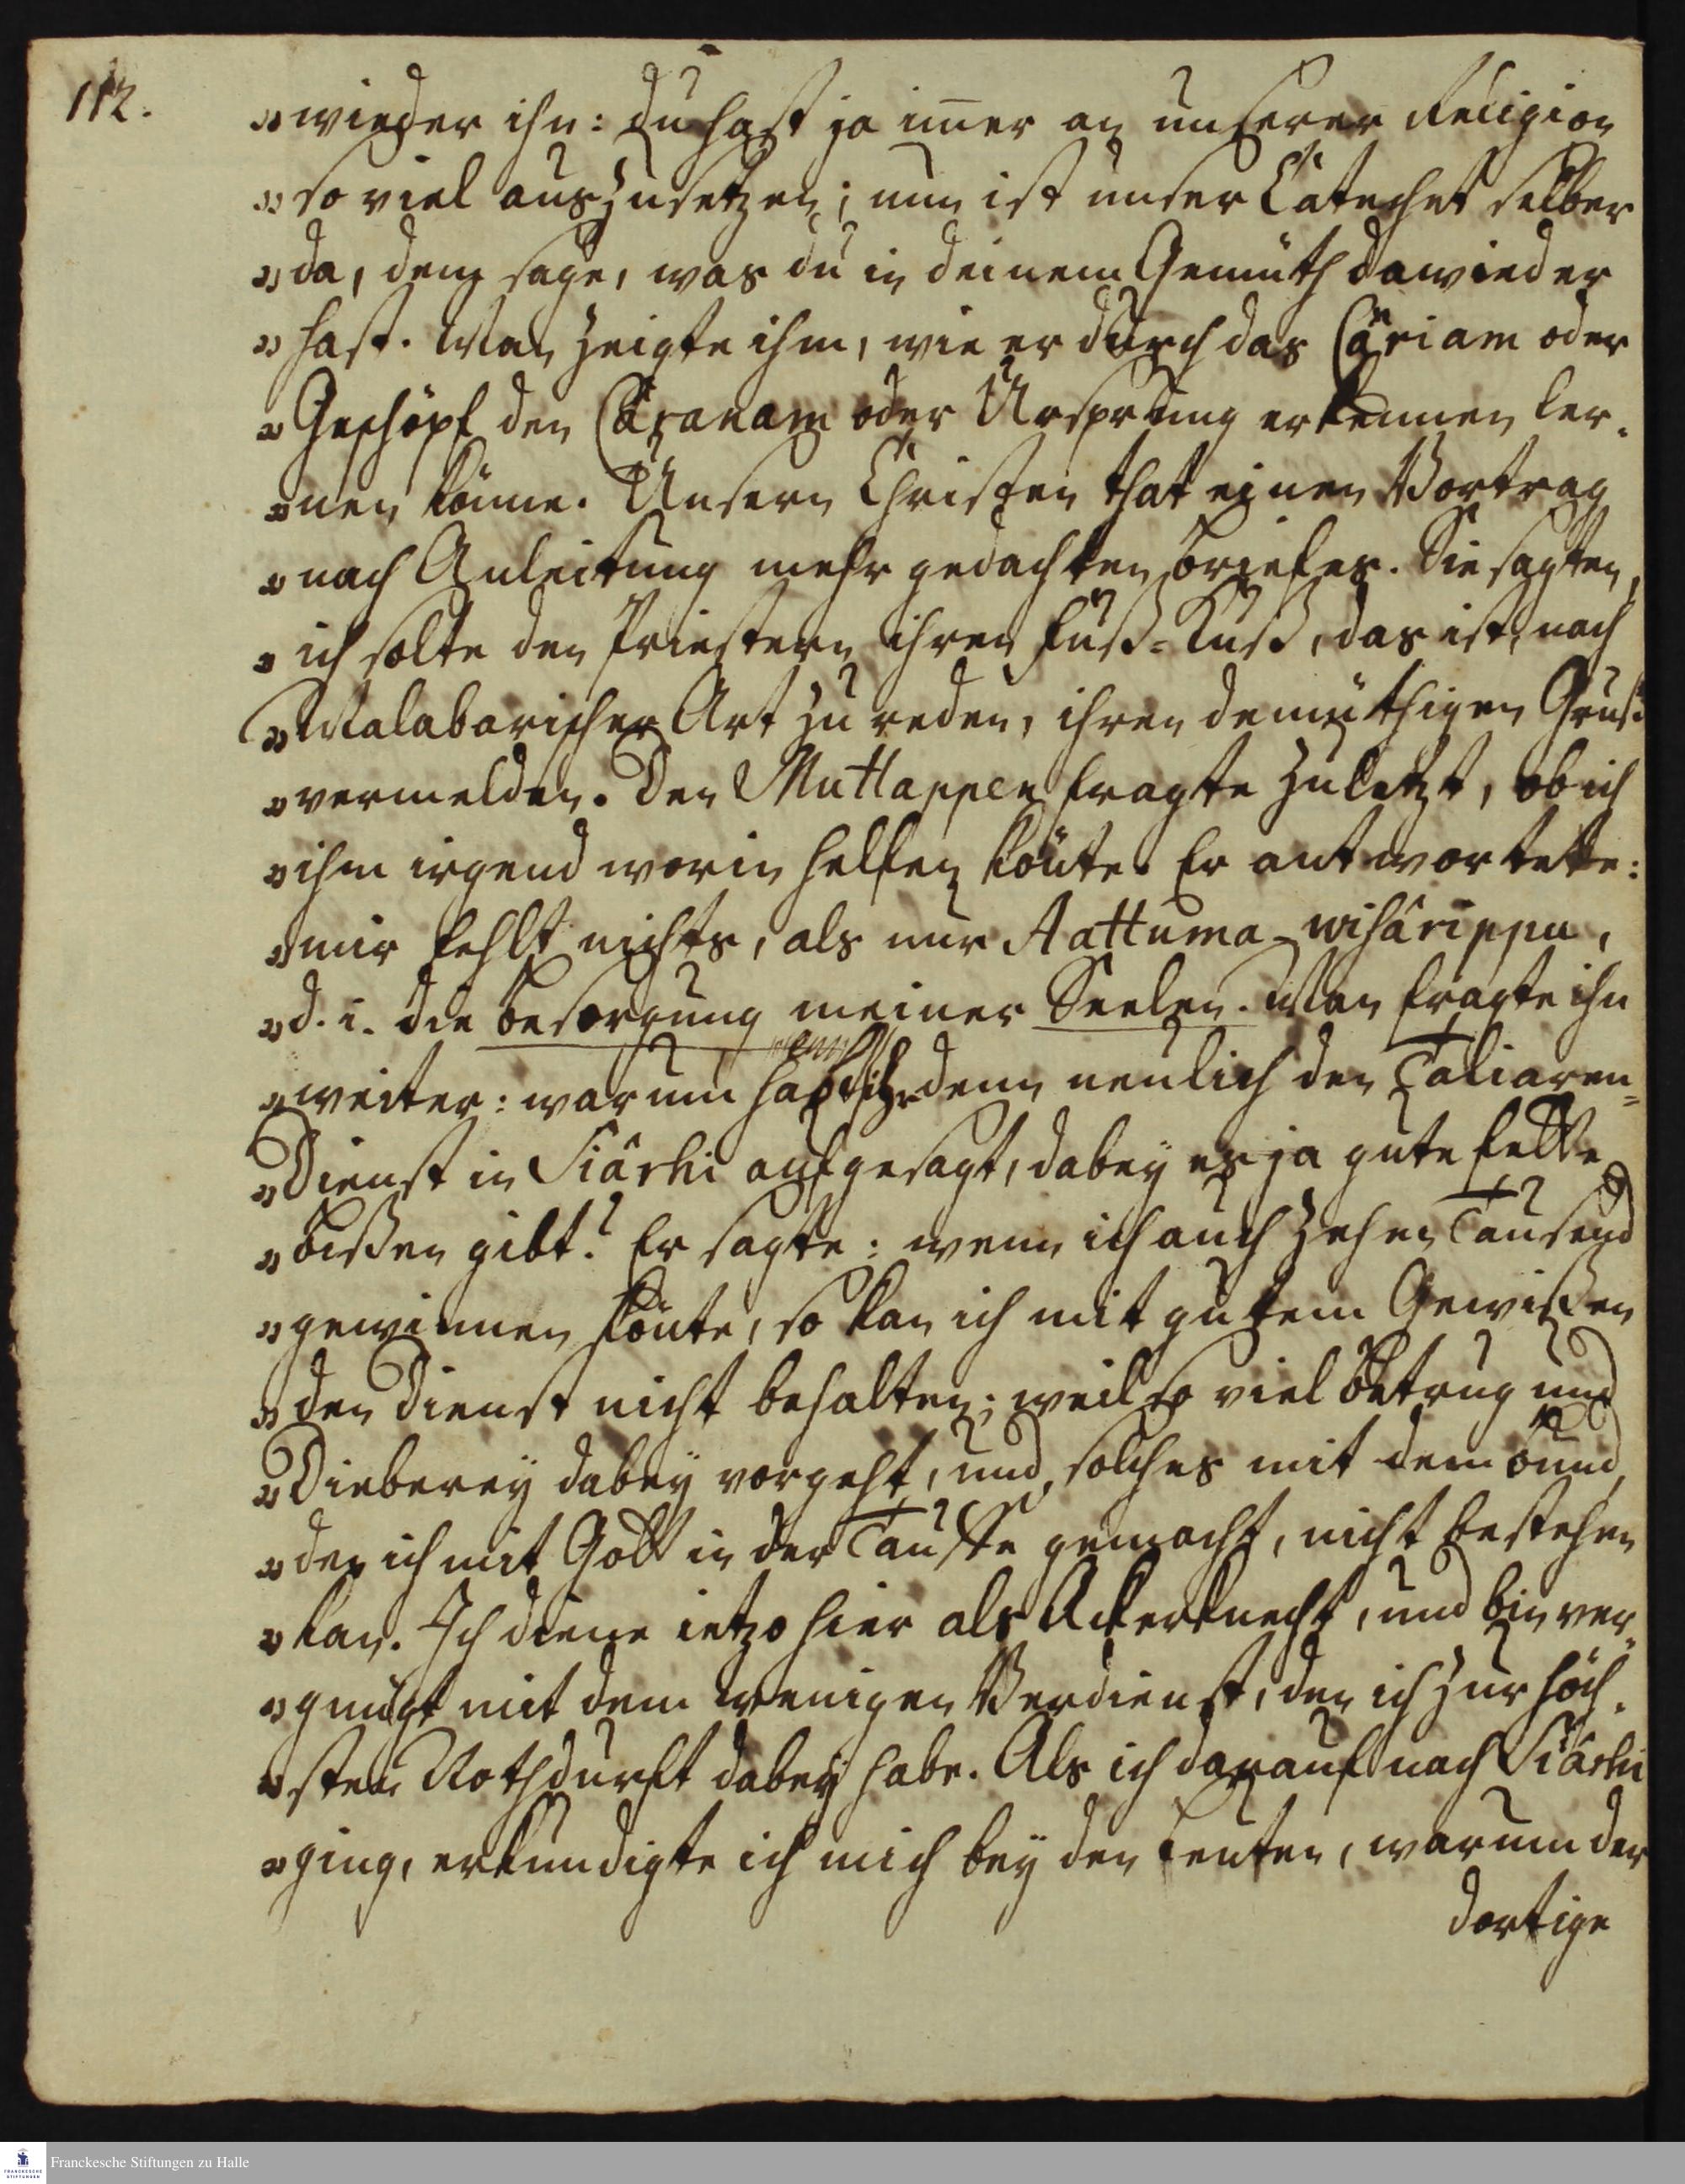 112.
„wieder ihn: du hast ja im̄er an unserer Religion
„so viel auszusetzen; nun ist unser Catechet selber
„da, dem sage, was du in deinem Gemüth dawieder
„hast. Man zeigte ihm, wie er durch das Câriam oder
„Geschöpf den Câranam oder Ursprung erkennen ler-
„nen könne. Unsern Christen that einen Vortrag
„nach Anleitung mehr gedachten Briefes. Sie sagten,
„ich solte den Priestern ihren Fuß-Kuß, das ist, nach
„Malabarischer Art zu reden, ihren demüthigen Gruß
„vermelden. Den Muttappen fragte zuletzt, ob ich
„ihm irgend worin helfen könte. Er antwortete:
„mir fehlt nichts, als nur Aattuma-wisârippu,
„d. i. die Besorgung meiner Seelen. Man fragte ihn
„weiter: warum habt ihr denn neulich den Taliaren=
„Dienst in Siârhi aufgesagt, dabey es ja gute fette
„Bißen gibt? Er sagte: wenn ich auch zehen Tausend
„gewinnen könte, so kan ich mit gutem Gewißen
„den Dienst nicht behalten; weil so viel Betrug und
„Dieberey dabey vorgeht, und solches mit dem Bund,
„den ich mit Gott in der Tauffe gemacht, nicht bestehen
„kan. Ich diene ietzo hier als Ackerknecht, und bin ver-
„gnügt mit dem wenigen Verdienst, den ich zur höch-
„sten Nothdurft dabey habe. Als ich darauf nach Siârhi
„ging, erkundigte ich mich bey den Leuten, warum der
dortige
Franckesche Stiftungen zu Halle